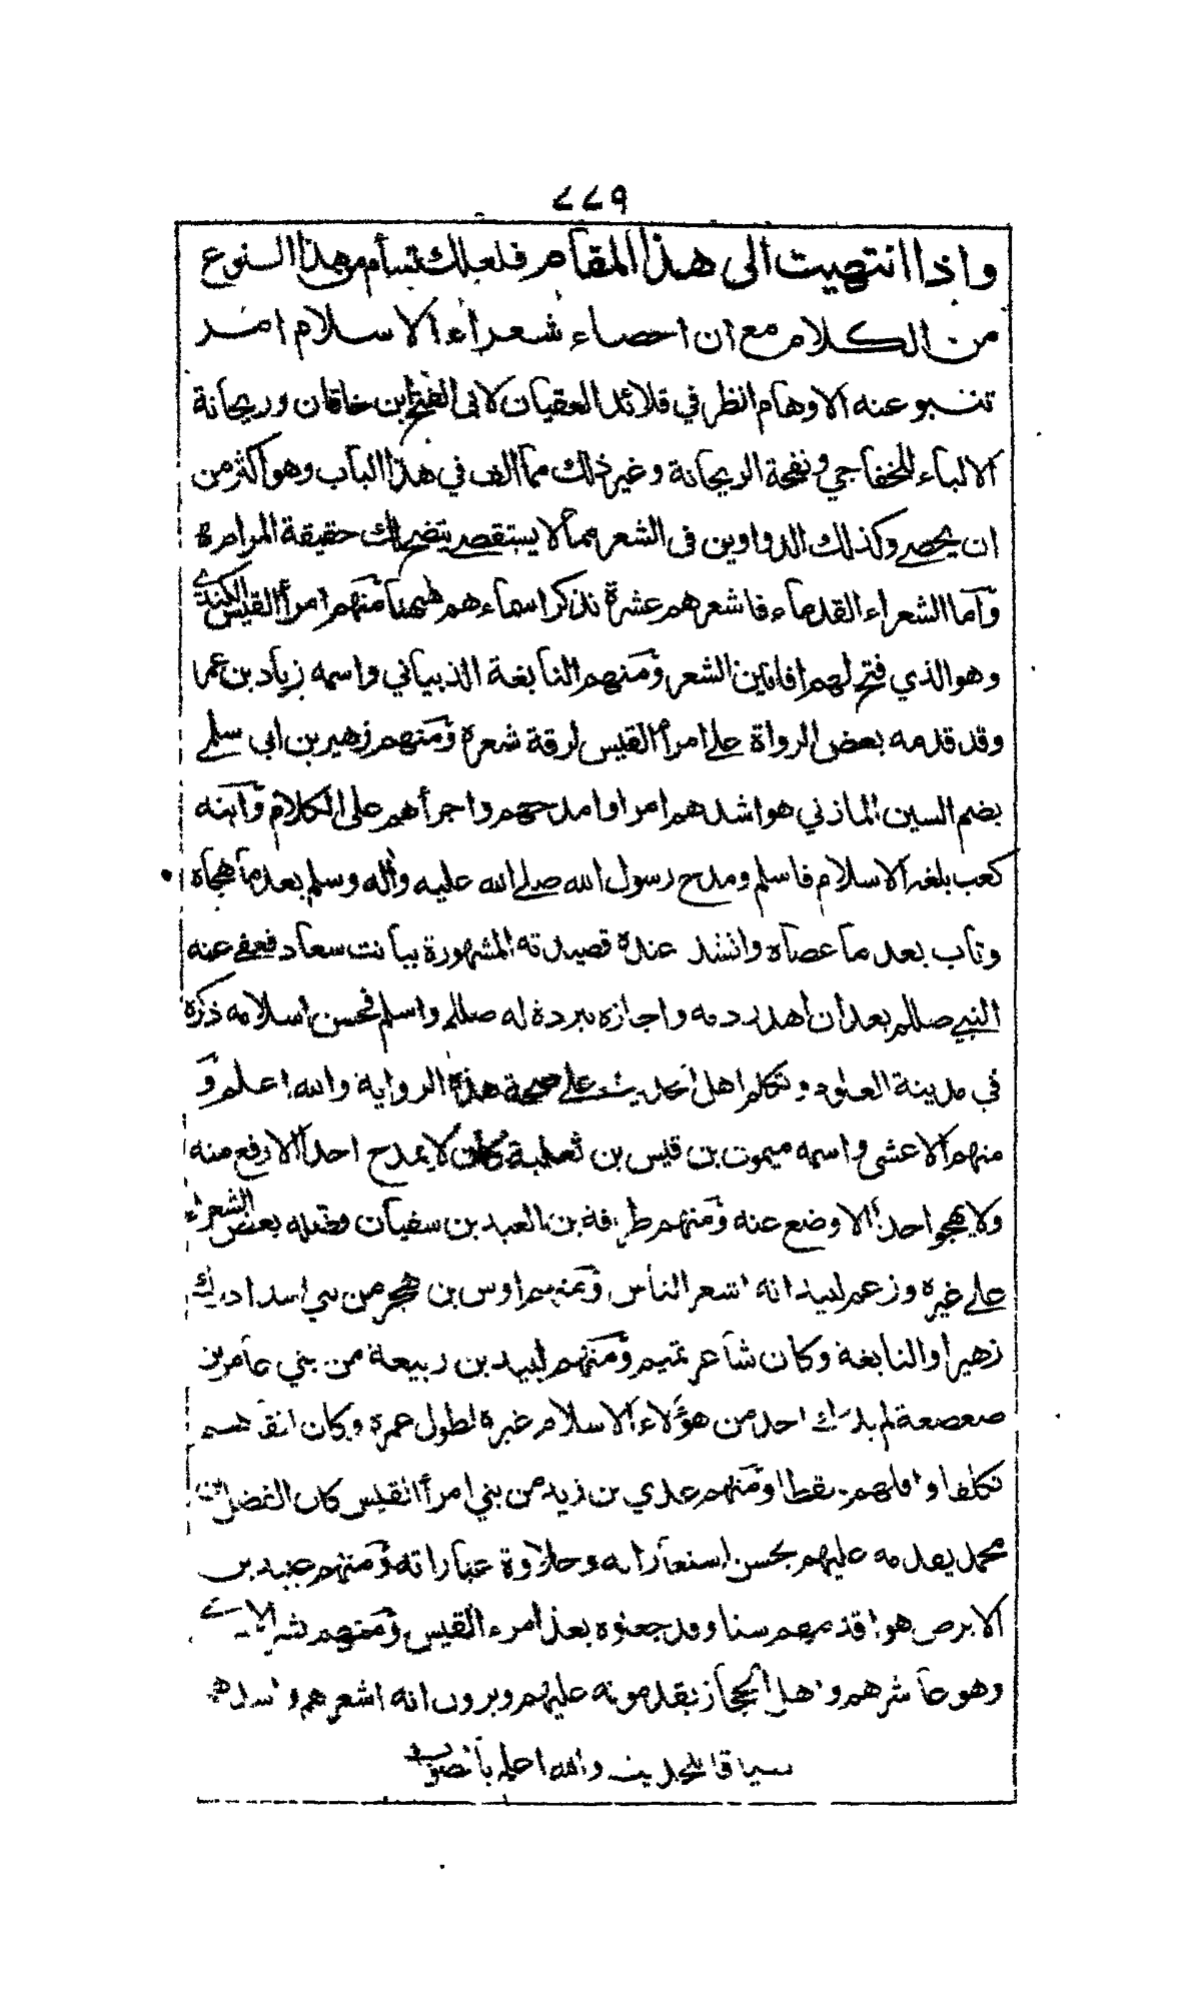 ٢٢٩
واذا انتهيت الى هذا المقام فلعلك تسأم من هذا النوع
من الكلام مع ان احصاء شعراء الاسلام امر
تنبو عنه الاوهام انظر في قلائد العقيان لابى الفتح ابن خاقان وريحانة
الالباء للخفاجي ونفحة الريحانة وغير ذلك مما الف في هذا الباب وهو اكثر من
ان يحصے وكذلك الدواوين فى الشعر مما لا يستقصے يتضح لك حقيقة المرام ه
وآما الشعراء القدماء فاشعرهم عشرة نذكر اسماءهم ههنا منهم امرأ القيس الكندے
وهو الذي فتح لهم افانين الشعر ومنهم النابغة الذبياني واسمه زياد بن عمرا
وقد قدمه بعض الرواة علے امرأ القيس لرقة شعره ومنهم زهير بن ابي سلمے
بضم السين المازني هو اشدهم امرا وامدحهم واجرأهم على الكلام وآبنه
كعب بلغه الاسلام فاسلم ومدح رسول الله صلے الله عليه وآله وسلم بعد ما هجاه
وتاب بعد ما عصاه وانشد عنده قصيدته المشهورة ببانت سعاد فعفے عنه
النبي صللم بعد ان اهدر دمه واجازه ببردة له صللم واسلم فحسن اسلامه ذكره
في مدينة العلوم وتكلم اهل الحديث علے صحة هذه الرواية والله اعلم و
منهم الاعشى واسمه ميمون بن قيس بن ثعلبة كان لا يمدح احدا الا رفع منه
ولا يهجو احدا الا وضع عنه ومنهم طرفة بن العبد بن سفيان وفضله بعض الشعراء
علے غيره وزعم لبيد انه اشعر الناس ومنهم اوس بن هجر من بني اسد ادرك
زهيرا والنابغة وكان شاعر تميم ومنهم لبيد بن ربيعة من بني عامر بن
صعصعة لم يدرك احد من هؤلاء الاسلام غيره لطول عمره وكان انقهم
تكلفا واقلهم سقطا ومنهم عدي بن زيد من بني امرأ القيس كان الفضل بن
محمد يقدمه عليهم بحسن استعاراته وحلاوة عباراته ومنهم عبيد بن
الابرص هو اقدمهم سنا وقد جعلوه بعد امرء القيس ومنهم بشر
وهو عاشرهم واهل الحجاز يقدمونه عليهم ويرون انه اشعرهم واسدهم
سياقا للحديث والله اعلم بالصواب